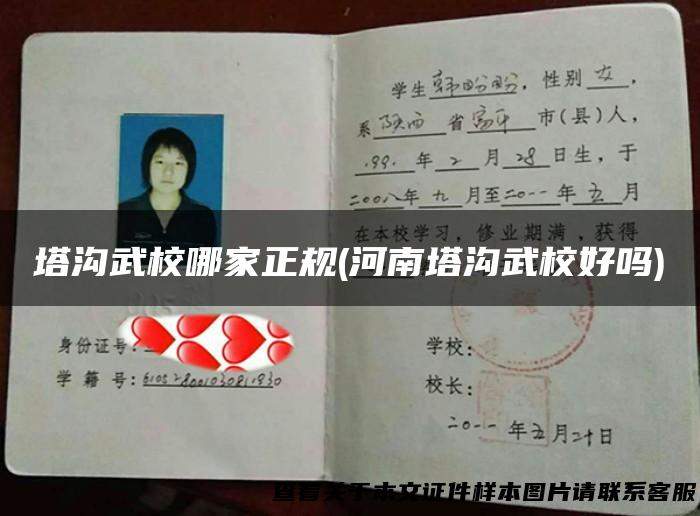 学生韩盼盼，性别女，
系陕西省富平市(县)人，
.991.年2月28日生，于
二00八年九月至二0一一年五月
在本校学习，修业期满，获得
塔沟武校哪家正规(河南塔沟武校好吗)
身份证号:
学籍号:
学校:
校长:
二0一一年五月二十日
查看关于本文证件样本图片请联系客服